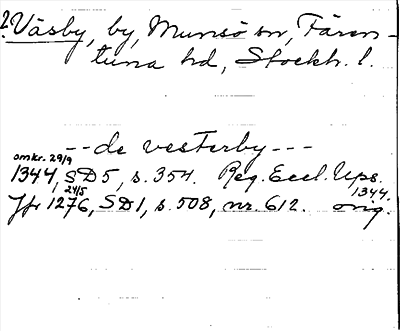 2. Väsby, by, Munsö sn, Fären-
tuna hd, Stockh. l.
--de vesterby---
omkr. 29/9
1344, SD5, s. 354. Reg. Eccl. Ups.
1344.
24/5
Jfr 1276, SD1, s. 508, nr. 612. orig.